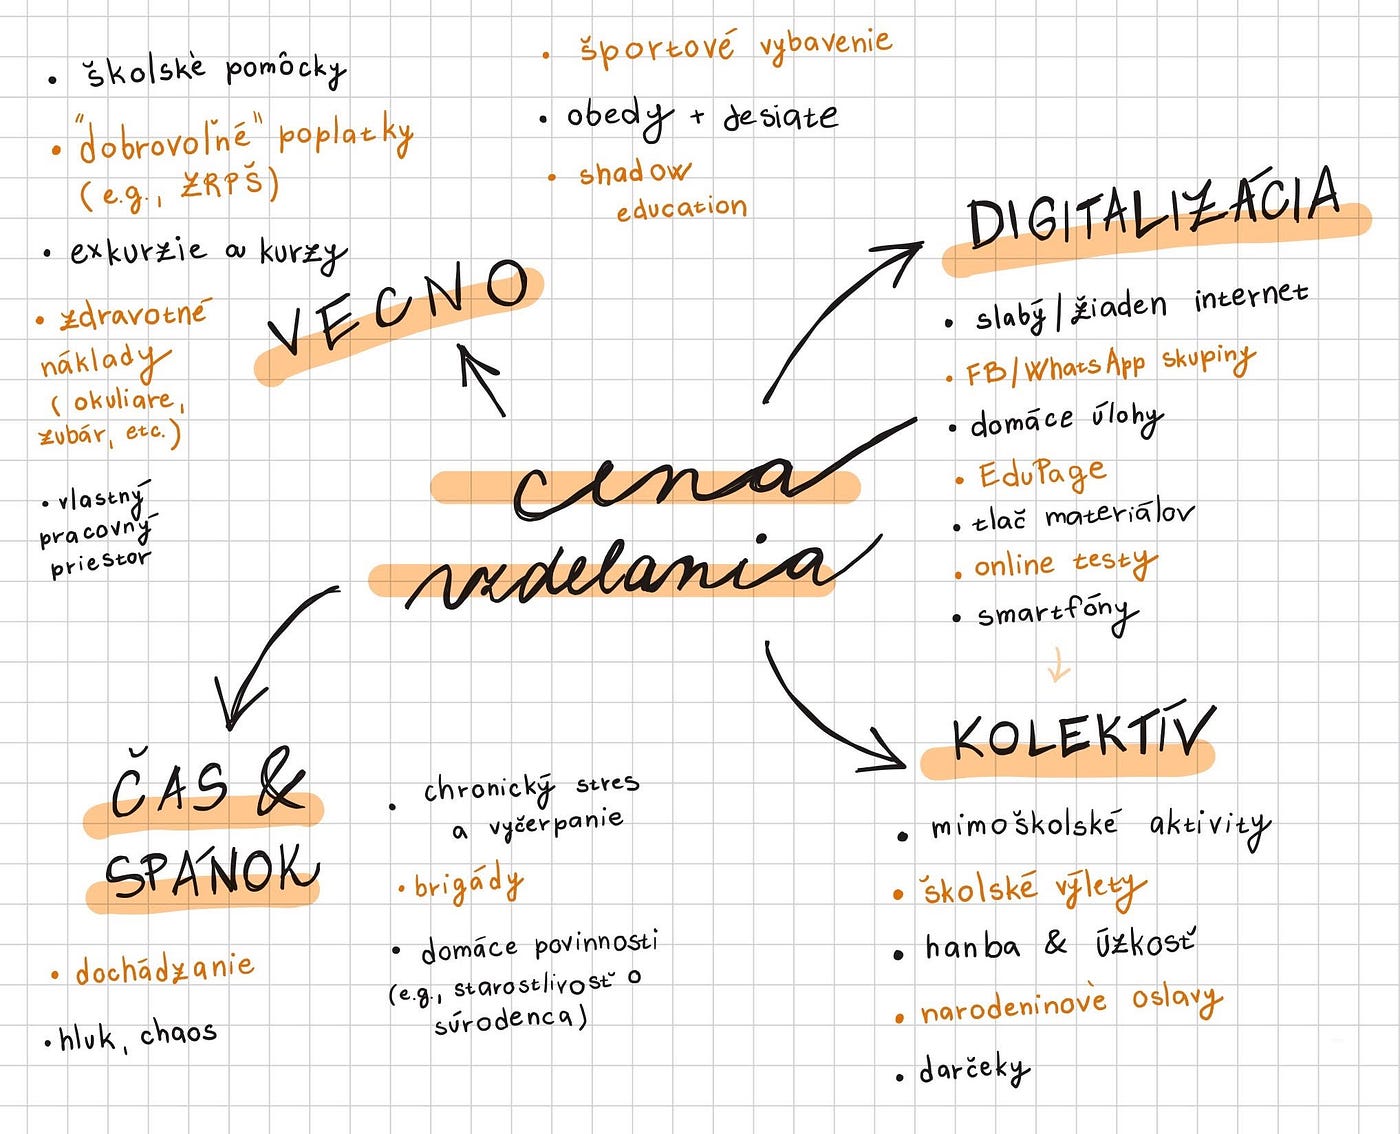 • školské pomôcky
• "dobrovoľné" poplatky
(e.g., ZRPŠ)
• exkurzie a kurzy
• zdravotné
náklady
(okuliare,
zubár, etc.)
• vlastný
pracovný
priestor
• športové vybavenie
• obedy + desiate
• shadow
education
VECNO
DIGITALIZÁCIA
• slabý/žiaden internet
• FB/WhatsApp skupiny
• domáce úlohy
• EduPage
• tlač materiálov
• online testy
• smartfóny
cena
vzdelania
ČAS &
SPÁNOK
• dochádzanie
• hluk, chaos
• chronický stres
a vyčerpanie
• brigády
• domáce povinnosti
(e.g., starostlivosť o
súrodenca)
KOLEKTÍV
• mimoškolské aktivity
• školské výlety
• hanba & úzkosť
• narodeninové oslavy
• darčeky